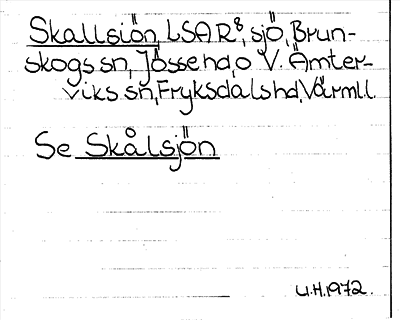 Skallsjön, LSA R⁸, sjö, Brun-
skogs sn, Jösse hd, o V. Ämter-
viks sn, Fryksdals hd, Värml.
Se Skålsjön
U.H. 1972.